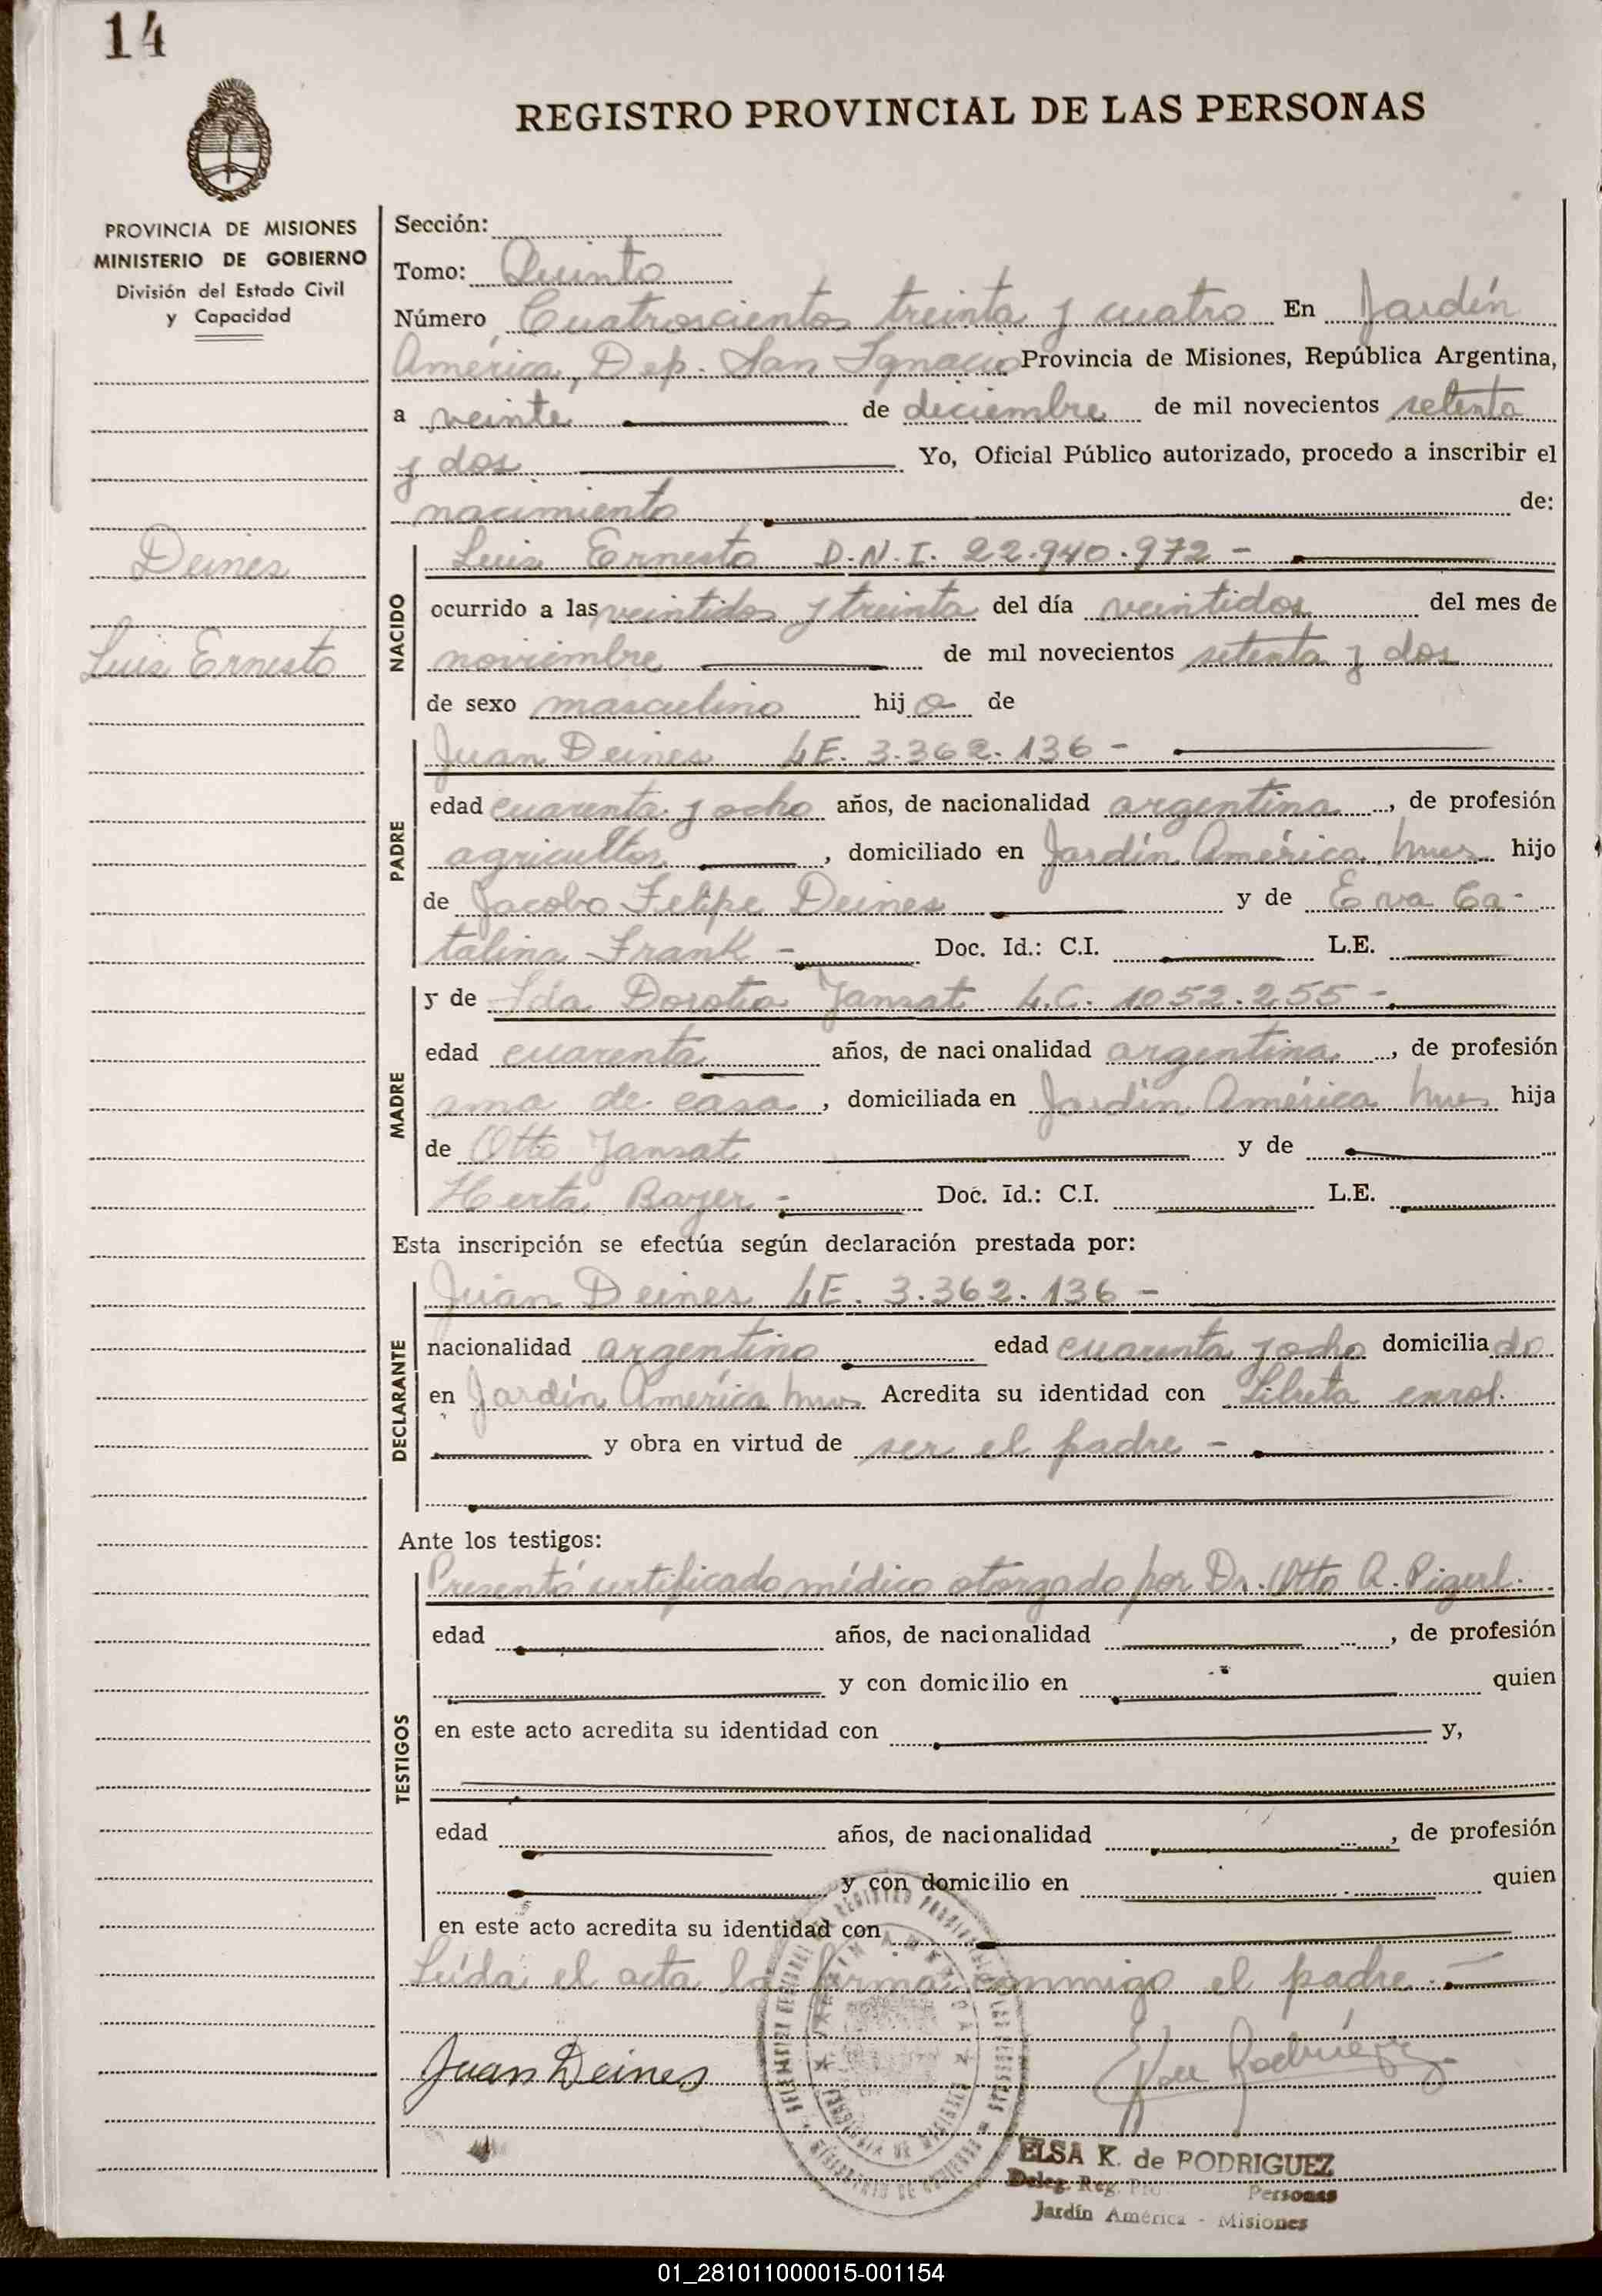 14
REGISTRO PROVINCIAL DE LAS PERSONAS
PROVINCIA DE MISIONES
MINISTERIO DE GOBIERNO
División del Estado Civil
y Capacidad
Deines
Luis Ernesto
Sección:
Tomo: Quinto
Número Cuatroscientos treinta y cuatro En Jardín
América, Dep. San Ignacio Provincia de Misiones, República Argentina,
a veinte de deciembre de mil novecientos setenta
y dos Yo, Oficial Público autorizado, procedo a inscribir el
nacimiento de:
NACIDO
Luis Ernesto D.N.I. 22.940.972 -
ocurrido a las veintidos y treinta del día veintidos del mes de
noviembre de mil novecientos setenta y dos
de sexo masculino hijo de
PADRE
Juan Deines LE. 3.362.136 -
edad cuarenta y ocho años, de nacionalidad argentina, de profesión
agricultor, domiciliado en Jardín América, hijo
de Jacobo Felipe Deines y de Eva Ca-
talina Frank - Doc. Id.: C.I. L.E.
MADRE
y de Ida Dorotea Jansat L.C. 1052.255 -
edad cuarenta años, de nacionalidad argentina, de profesión
ama de casa, domiciliada en Jardín América hija
de Otto Jansat y de
Herta Bayer - Doc. Id.: C.I. L.E.
Esta inscripción se efectúa según declaración prestada por:
DECLARANTE
Juan Deines LE. 3.362.136 -
nacionalidad argentino edad cuarenta y ocho domiciliado
en Jardín América Acredita su identidad con Libreta enrol.
y obra en virtud de ser el padre -
Ante los testigos:
TESTIGOS
Presentó certificado médico otorgado por Dr. Otto A.
edad años, de nacionalidad , de profesión
y con domicilio en quien
en este acto acredita su identidad con y,
edad años, de nacionalidad , de profesión
y con domicilio en quien
en este acto acredita su identidad con
Leída el acta la firma conmigo el padre.
Juan Deines
Rodríguez
ELSA K. de RODRIGUEZ
Deleg. Reg. Personas
Jardín América - Misiones
01_281011000015-001154